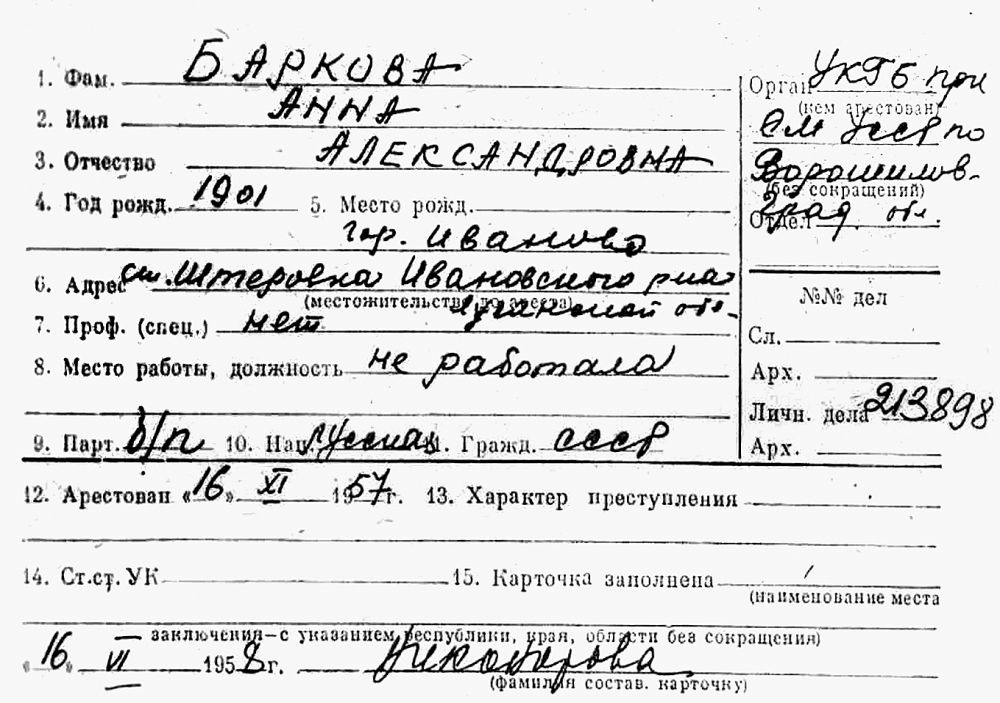 1. Фам. БАРКОВА
2. Имя АННА
3. Отчество АЛЕКСАНДРОВНА
4. Год рожд. 1901 5. Место рожд.
гор. Иваново
6. Адрес ст. Штеровка Ивановского р-на
(местожительство до ареста)
Луганской обл.
7. Проф. (спец.) нет
8. Место работы, должность не работала
9. Парт. б/п 10. Нац. русская 11. Гражд. СССР
Орган УКГБ при
(кем арестован)
СМ УССР по
Ворошилов-
(без сокращений)
град. обл.
Отдел
№№ дел
Сл.
Арх.
Личн. дела 213898
Арх.
12. Арестован «16» XI 1957г. 13. Характер преступления
14. Ст.ст. УК 15. Карточка заполнена
(наименование места
заключения—с указанием республики, края, области без сокращения)
«16» VI 1958г. Никонорова
(фамилия состав. карточку)